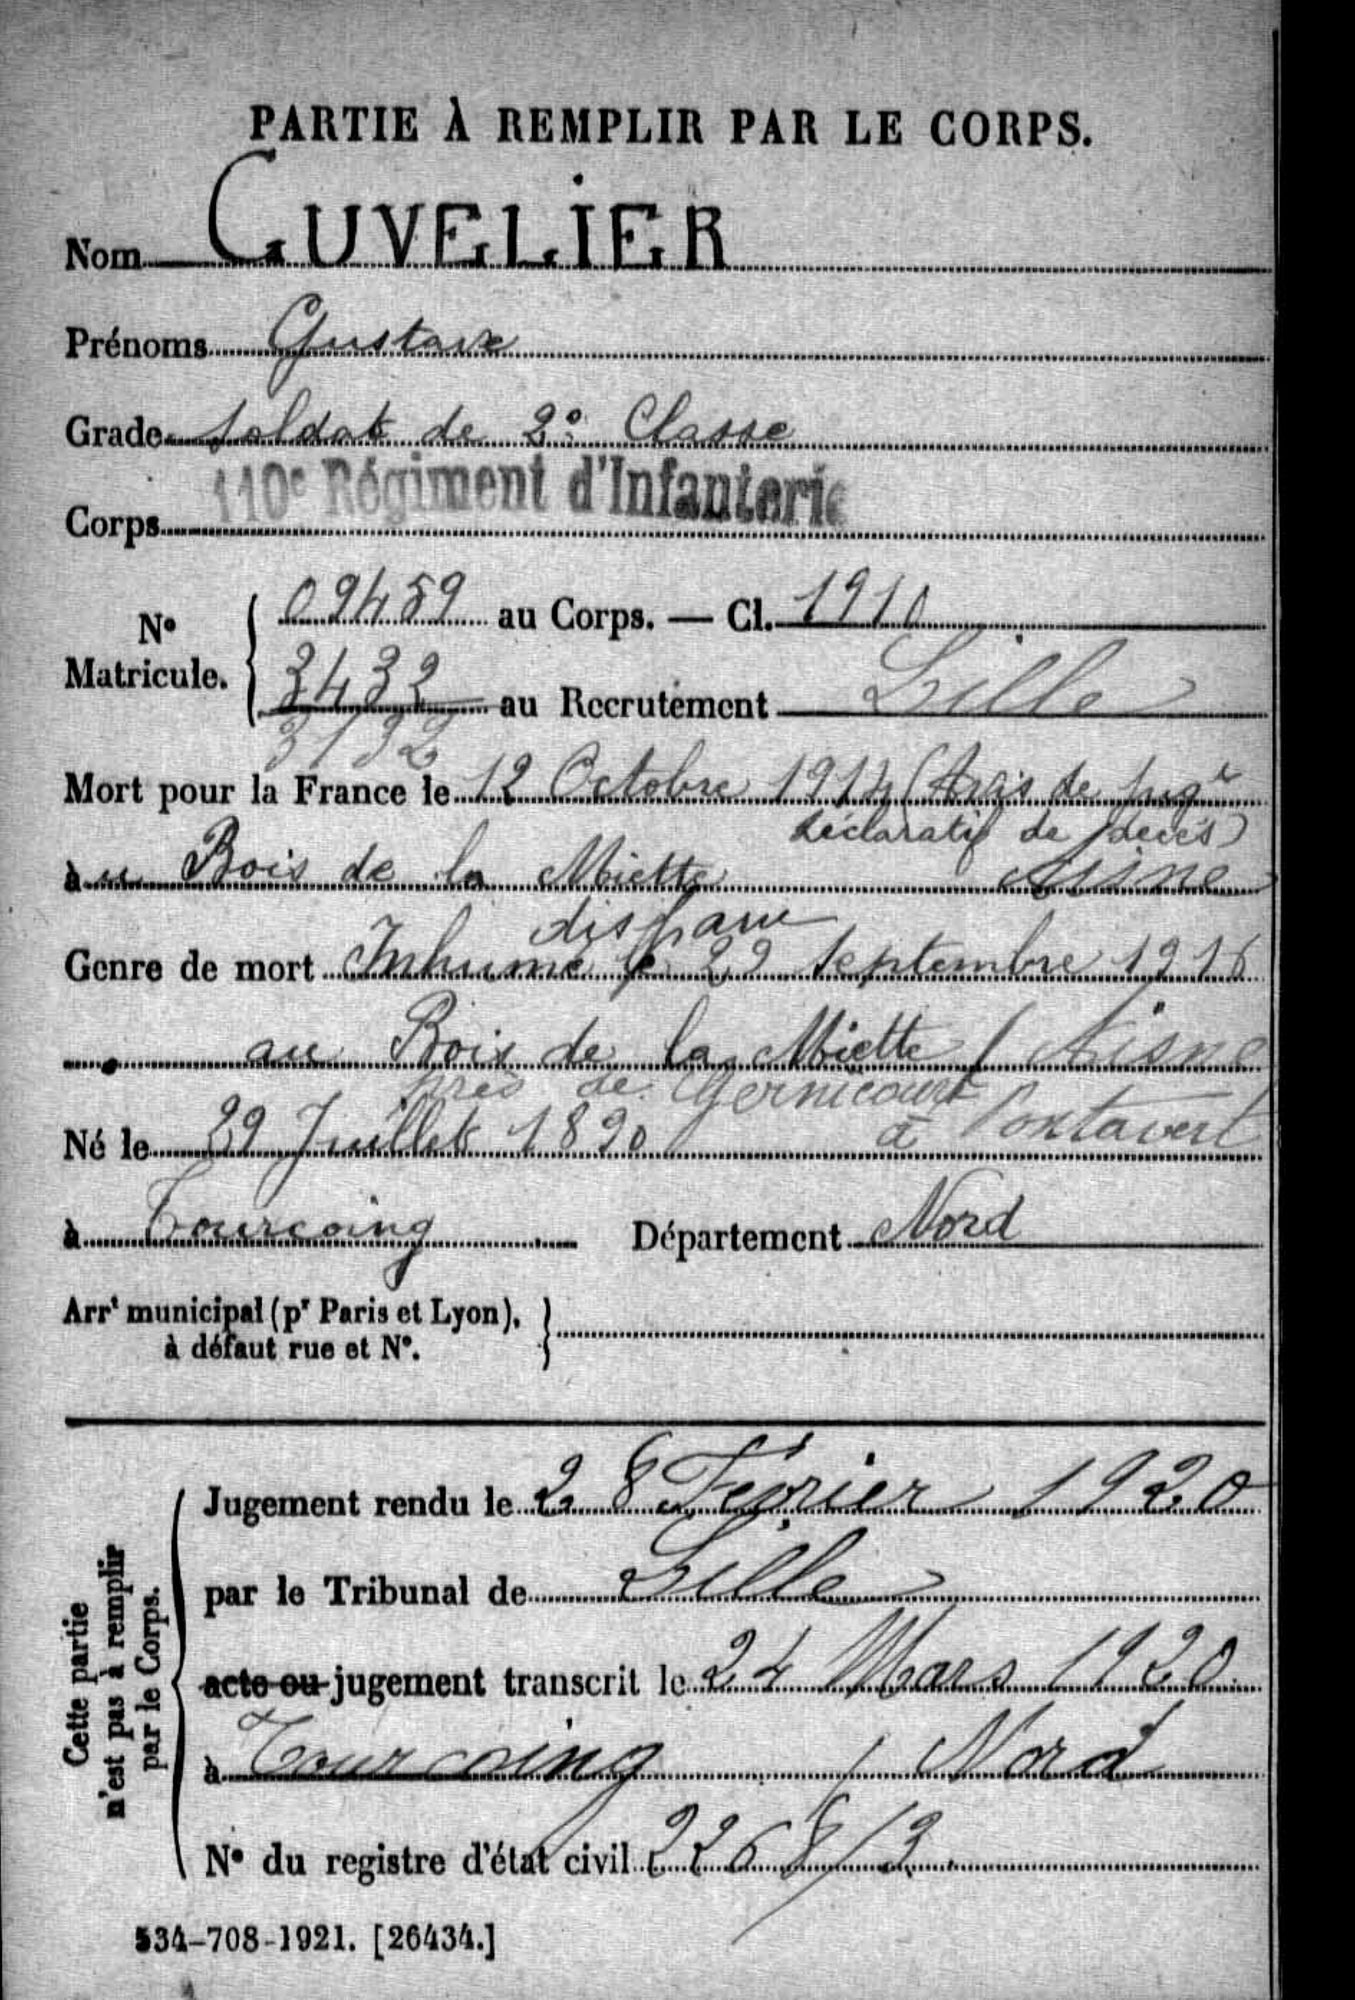 PARTIE À REMPLIR PAR LE CORPS.
Nom CUVELIER
Prénoms Gustave
Grade Soldat de 2e Classe
Corps 110e Régiment d'Infanterie
N° Matricule. 09459 au Corps. — Cl. 1910
3432 au Recrutement Lille
3132
Mort pour la France le 12 Octobre 1914 (Avis de jugt
déclaratif de décès)
au Bois de la Miette Aisne
disparu
Genre de mort Inhumé le 29 Septembre 1916
au Bois de la Miette (Aisne
près de Gernicourt
à Pontavert
Né le 29 Juillet 1890
à Tourcoing Département Nord
Arrt municipal (pr Paris et Lyon),
à défaut rue et N°.
Cette partie
n'est pas à remplir
par le Corps.
Jugement rendu le 28 Février 1920
par le Tribunal de Lille
acte ou jugement transcrit le 24 Mars 1920
à Tourcoing / Nord
N° du registre d'état civil 2268/3
534-708-1921. [26434.]